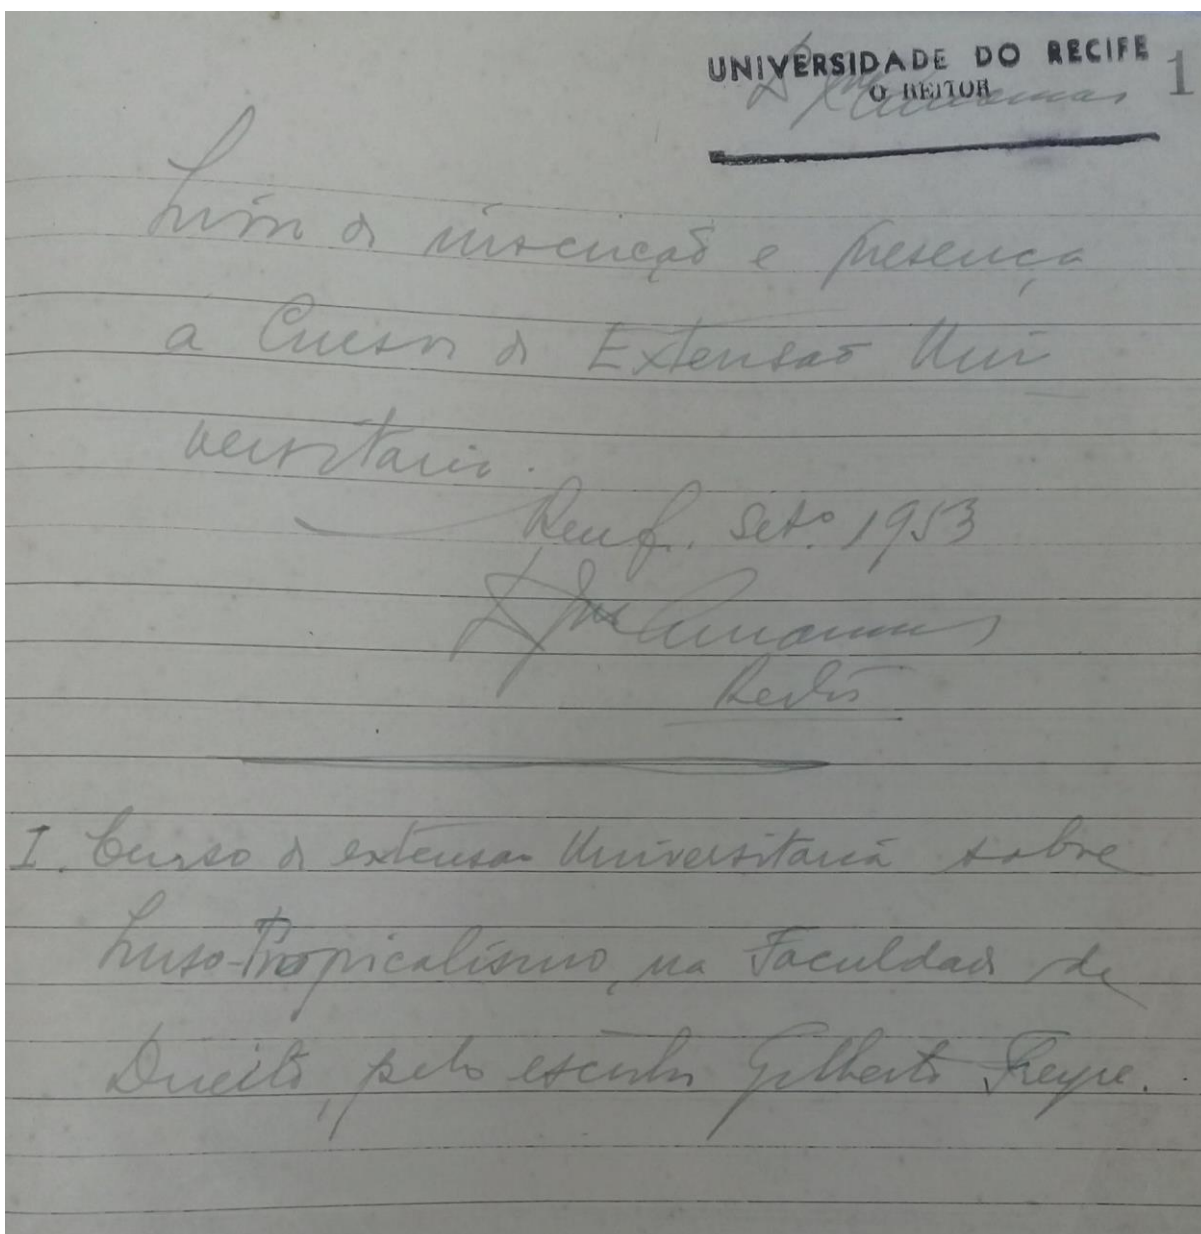 UNIVERSIDADE DO RECIFE
O REITOR
1
Livro de inscrição e presença
a Cursos de Extensão Uni
versitaria.
Recife. Setº 1953
Reitor
I. Curso de extensao Universitaria sobre
Luso-Tropicalismo, na Faculdade de
Direito, pelo escritor Gilberto Freyre.